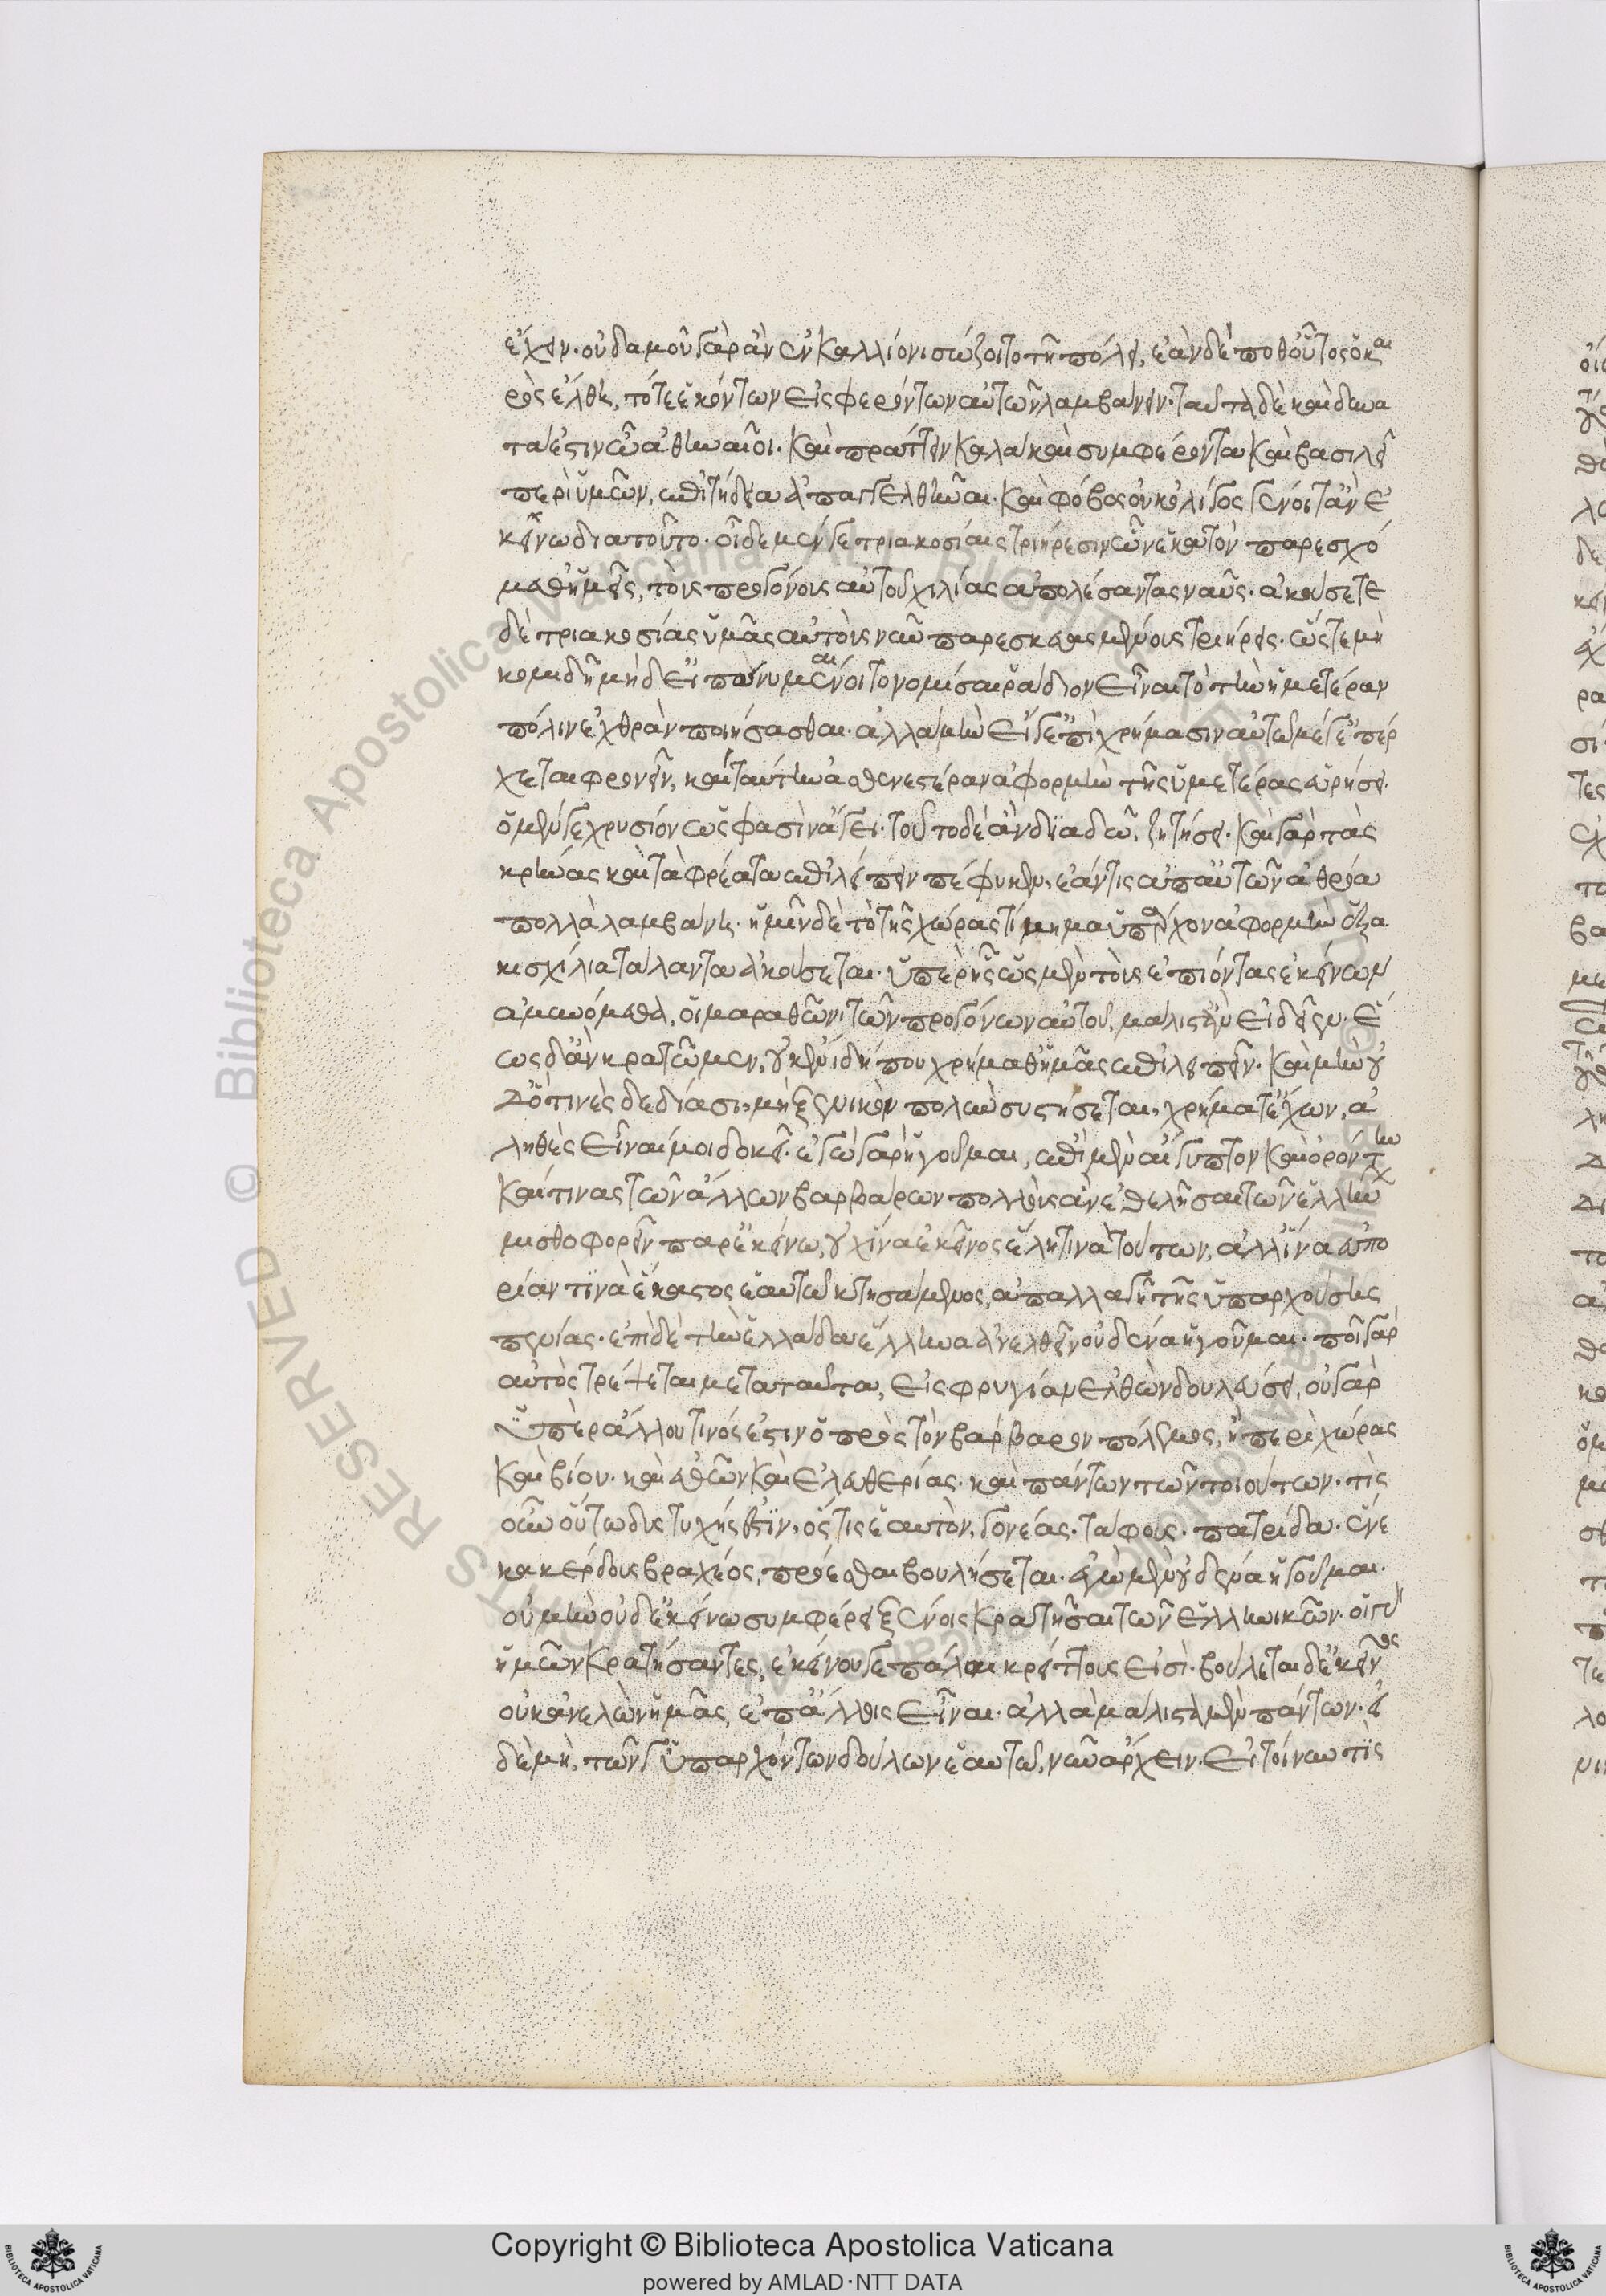 ἔχειν· οὐδαμοῦ γὰρ ἂν ἐν καλλίονι σώζοιτο τῆ πόλει, ἐὰν δέ ποθ' οὗτος ὁ και
ρὸς ἔλθη, τότε ἑκόντων εἰσφερόντων αὐτῶν λαμβάνειν· ταῦτα δὲ καὶ δυνα
τά ἐστιν ὦ ἀθηναῖοι· καὶ πράττειν καλὰ καὶ συμφέροντα καὶ βασιλεῖ
περὶ ὑμῶν, ἐπιτήδεια ἀπαγγελθῆναι· καὶ φόβος οὐκ ὀλίγος γένοιτ' ἂν ἐ
κείνω διὰ τοῦτο· οἶδε μέν γε τριακοσίαις τριήρεσιν ὧν ἑκατὸν παρεσχό
μεθ' ἡμεῖς, τοὺς προγόνους αὐτοῦ χιλίας ἀπολέσαντας ναῦς· ἀκούσεται
δὲ τριακοσίας ὑμᾶς αὐτοὺς νῦν παρεσκευασμένους τριήρεις· ὥστε μὴ
κομιδῆ μηδ' εἰ πάνυ μαίνοιτο νομίσαι ῥάδιον εἶναι τὸ τὴν ἡμετέραν
πόλιν ἐχθρὰν ποιήσασθαι· ἀλλὰ μὴν εἴ γε ἐπὶ χρήμασιν αὐτῶ μέγ' ἐπέρ
χεται φρονεῖν, καὶ ταύτην ἀσθενεστέραν ἀφορμὴν τῆς ὑμετέρας εὑρήσει·
ὁ μέν γε χρυσίον ὥς φασιν ἄγει· τοῦτο δὲ ἂν διαδῶ, ζητήσει· καὶ γὰρ τὰς
κρήνας καὶ τὰ φρέατα ἐπιλείπειν πέφυκεν, ἐάν τις ἀπ' αὐτῶν ἀθρόα
πολλὰ λαμβάνη· ἡμῖν δὲ τὸ τῆς χώρας τίμημα ὑπάρχον ἀφορμὴν ἑξα
κισχίλια τάλαντα ἀκούσεται· ὑπὲρ ἧς ὡς μὲν τοὺς ἐπιόντας ἐκείνων
ἀμυνόμεθα, οἱ μαραθῶνι τῶν προγόνων αὐτοῦ, μάλιστ' ἂν εἰδεῖεν· ἕ
ως δ' ἂν κρατῶμεν, οὐκ ἔνι δήπου χρήμαθ' ἡμᾶς ἐπιλιπεῖν· καὶ μὴν οὐ
δ' ὅ τινὲς δεδίασι, μὴ ξενικὸν πολὺ συστήσεται, χρήματ' ἔχων, ἀ
ληθὲς εἶναί μοι δοκεῖ· ἐγὼ γὰρ ἡγοῦμαι, ἐπὶ μὲν αἴγυπτον καὶ ὀρόντην
καί τινας τῶν ἄλλων βαρβάρων πολλοὺς ἂν ἐθελῆσαι τῶν ἑλλήνων
μισθοφορεῖν παρ' ἐκείνω, οὐχ ἵνα ἐκεῖνος ἕλη τινὰ τούτων, ἀλλ' ἵνα εὐπο
ρίαν τινὰ ἕκαστος ἑαυτῶ κτησάμενος, ἀπαλλαγῆ τῆς ὑπαρχούσης
πενίας· ἐπὶ δὲ τὴν ἑλλάδα ἕλληνα ἀνελθεῖν οὐδένα ἡγοῦμαι· ποῖ γὰρ
αὐτὸς τρέψεται μετὰ ταῦτα, εἰς φρυγίαν ἐλθὼν δουλεύσει, οὐ γὰρ
ὑπὲρ ἄλλου τινός ἐστιν ὁ πρὸς τὸν βάρβαρον πόλεμος, ἢ περὶ χώρας
καὶ βίου· καὶ ἐθῶν καὶ ἐλευθερίας· καὶ πάντων τῶν τοιούτων· τίς
οὖν οὕτω δυστυχής ἐστιν, ὅστις ἑαυτὸν, γονέας· τάφους· πατρίδα· ἕνε
κα κέρδους βραχέος, προέσθαι βουλήσεται· ἐγὼ μὲν οὐδένα ἡγοῦμαι·
οὐ μὴν οὐδ' ἐκείνω συμφέρει ξένοις κρατῆσαι τῶν ἑλληνικῶν· οἱ γὰρ
ἡμῶν κρατήσαντες, ἐκείνου γε πάλαι κρείττους εἰσί· βούλεται δ' ἐκεῖνος
οὐκ ἀνελὼν ἡμᾶς, ἐπ' ἄλλοις εἶναι· ἀλλὰ μάλιστα μὲν πάντων· εἰ
δὲ μὴ, τῶν γ' ὑπαρχόντων δούλων ἑαυτῶ, νῦν ἄρχειν· εἰ τοίνυν τις
Copyright © Biblioteca Apostolica Vaticana
powered by AMLAD·NTT DATA